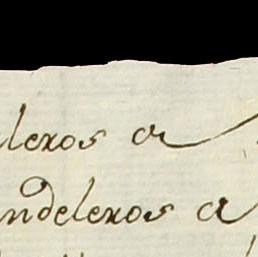 leros a
ndeleros a